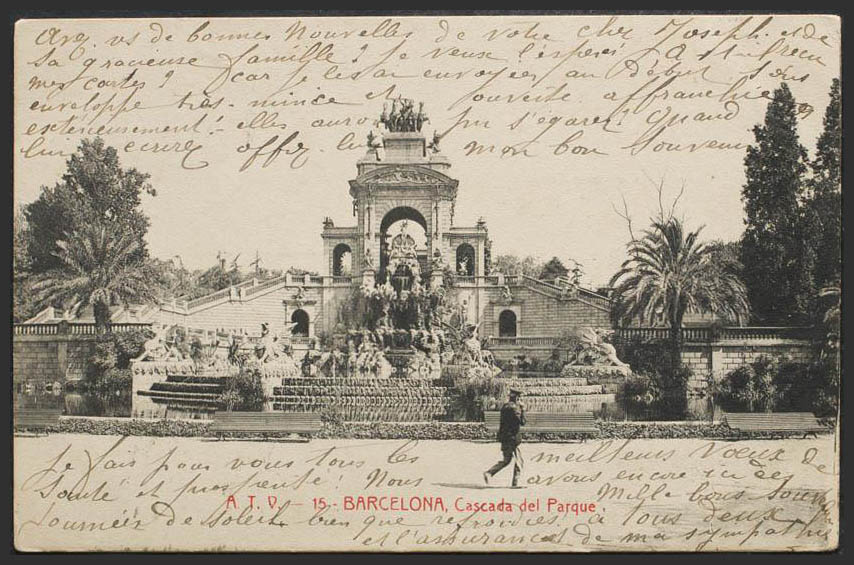 Avez vs de bonnes Nouvelles de votre cher Joseph. et de
Sa gracieuse famille? je veux l'espérer. A-t-il reçu
mes cartes? Car je les ai envoyées au Début sous
enveloppe très-mince et ouverte affranchie
extérieurement! elles auront pu s'égarer! Quand
lui écrirez offrez lui mon bon Souvenir
Je fais pour vous tous les meilleurs Vœux de
Santé et prospérité! Nous avons encore ici des
A. T. V. - 15.- BARCELONA, Cascada del Parque
Mille bons Souvenirs
Journées de Soleil, bien que refroidies, à tous deux
et l'assurance de ma sympathie